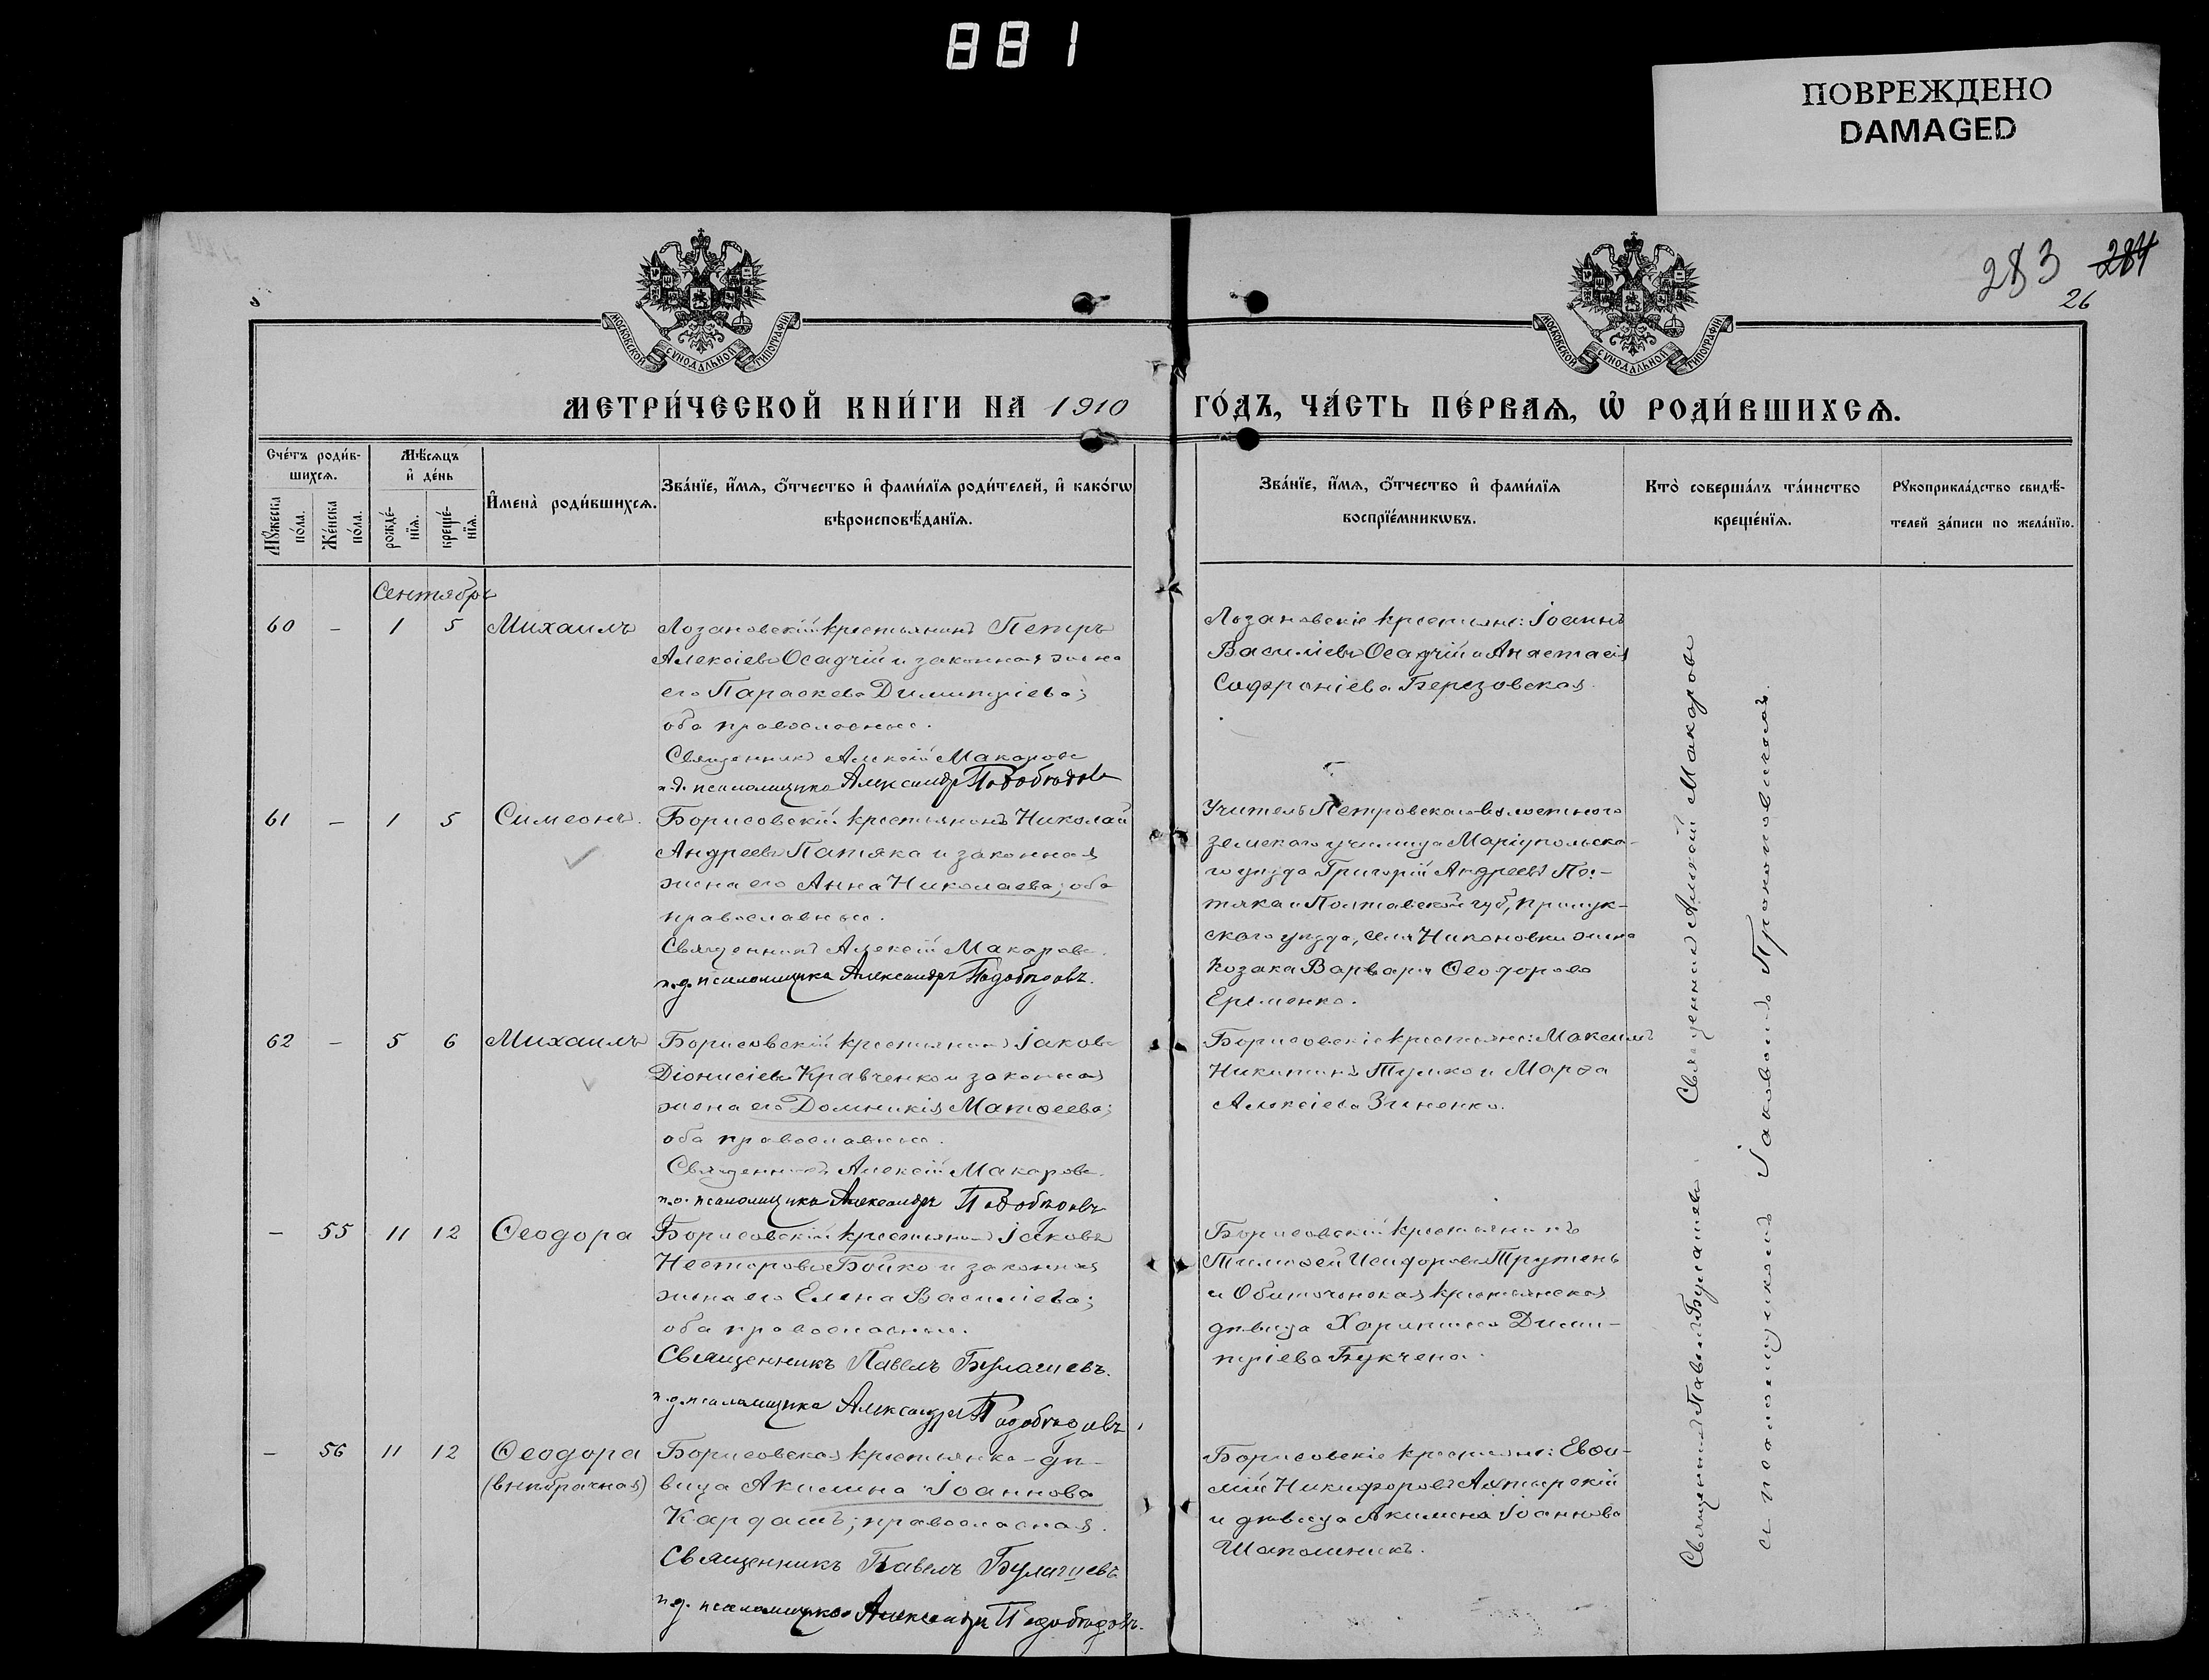 881
ПОВРЕЖДЕНО
DAMAGED
283 284
26
МОСКОВСКОЙ СѴНОДАЛЬНОЙ ТИПОГРАФІИ
МОСКОВСКОЙ СѴНОДАЛЬНОЙ ТИПОГРАФІИ
МЕТРИ́ЧЕСКОЙ КНИ́ГИ НА 1910 ГО́ДЪ, ЧА́СТЬ ПЕ́РВАѦ, Ѡ҆ РОДИ́ВШИХСѦ.
Сче́тъ роди́в-
шихсѧ.
Мꙋ́жеска по́ла.
Же́нска по́ла.
Мѣ́сѧцъ
и҆ де́нь
рожде́-нїѧ.
креще́-нїѧ.
И҆мена̀ роди́вшихсѧ.
Зва́нїе, и҆́мѧ, ѻ҆́тчество и҆ фами́лїѧ роди́телей, и҆ како́гѡ
вѣроисповѣ́данїѧ.
Зва́нїе, и҆́мѧ, ѻ҆́тчество и҆ фами́лїѧ
воспрїе́мникѡвъ.
Кто̀ соверша́лъ та́инство
креще́нїѧ.
Рꙋкоприкла́дство свидѣ́-
телей за́писи по жела́нїю.
Сентябрь
60 - 1 5 Михаилъ
Лозановскій крестьянинъ Петръ
Алексіевъ Осадчій и законная жена
его Параскева Димитріева;
оба православные.
Священникъ Алексій Макаровъ
и.д. псаломщика Александръ Подобѣдовъ
Лозановскіе крестьяне: Іоаннъ
Василіевъ Осадчій и Анастасія
Софроніева Березовская.
61 - 1 5 Симеонъ.
Борисовскій крестьянинъ Николай
Андреевъ Патяка и законная
жена его Анна Николаева; оба
православные.
Священникъ Алексій Макаровъ.
и.д. псаломщика Александръ Подобѣдовъ.
Учитель Петровскаго волостного
земскаго училища Маріупольска-
го уѣзда Григорій Андреевъ Па-
тяка и Полтавской губ., Прилук-
скаго уѣзда, села Никоновки жена
козака Варвара Ѳеодорова
Еременко.
62 - 5 6 Михаилъ
Борисовскій крестьянинъ Іаковъ
Діонисіевъ Кравченко и законная
жена его Домникія Матѳеева;
оба православные.
Священникъ Алексій Макаровъ.
и.д. псаломщика Александръ Подобѣдовъ
Борисовскіе крестьяне: Максимъ
Никитинъ и Марѳа
Алексіева Зиненко.
- 55 11 12 Ѳеодора
Борисовскій крестьянинъ Іаковъ
Несторовъ Бойко и законная
жена его Елена Василіева;
оба православные.
Священникъ Павелъ Булашевъ.
и.д. псаломщика Александръ Подобѣдовъ
Борисовскій крестьянинъ
Тимоѳей Исидоровъ Трутень
и Обиточенская крестьянская
дѣвица Харитина Дими-
тріева
- 56 11 12 Ѳеодора
(внѣбрачная)
Борисовская крестьянка - дѣ-
вица Акилина Іоаннова
Кардашъ; православная.
Священникъ Павелъ Булашевъ
и.д. псаломщика Александръ Подобѣдовъ.
Борисовскіе крестьяне: Евѳи-
мій Никифоровъ Ахтырскій
и дѣвица Акилина Іоаннова
Шаполникъ.
Священникъ Павелъ Булашевъ. Священникъ Алексій Макаровъ
съ псаломщикомъ Іаковомъ Прокоповичемъ.